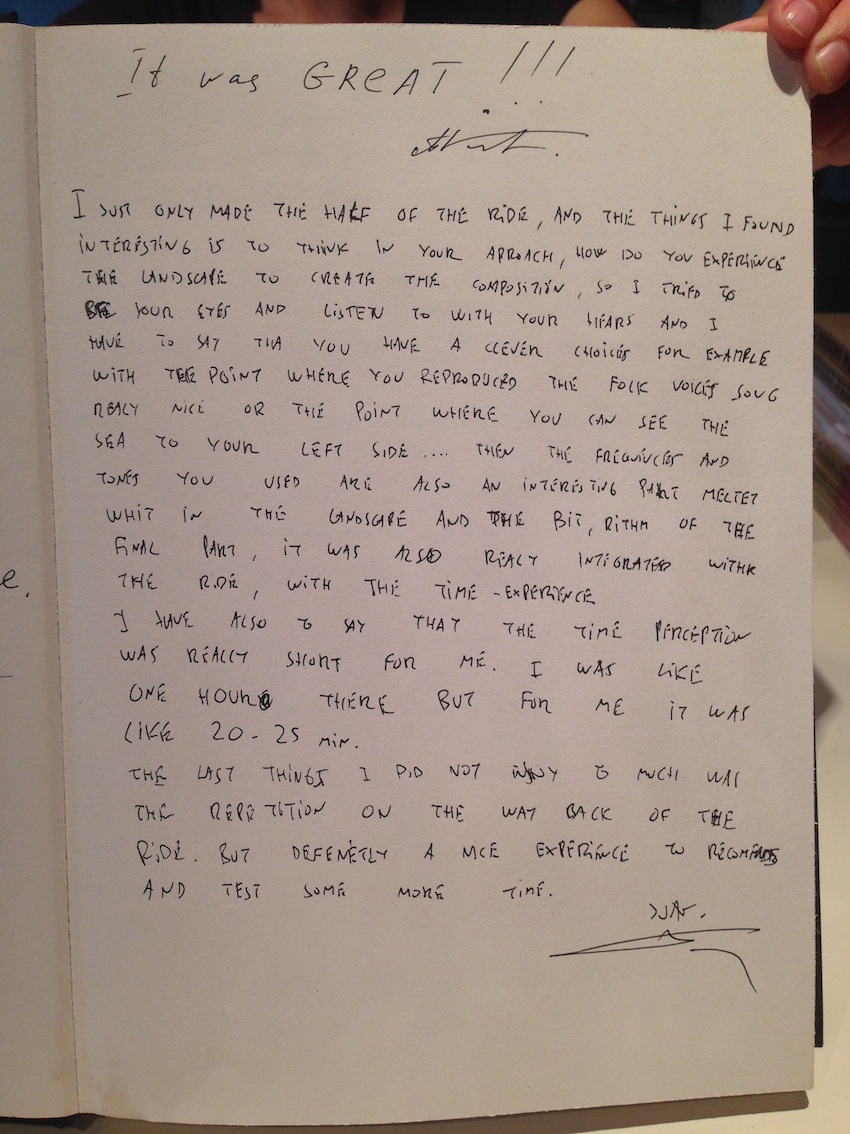 It was GREAT !!!
I JUST ONLY MADE THE HALF OF THE RIDE, AND THE THINGS I FOUND
INTERESTING IS TO THINK IN YOUR APROACH, HOW DO YOU EXPERIENCE
THE LANDSCAPE TO CREATE THE COMPOSITION, SO I TRIED TO
BE YOUR EYES AND LISTEN TO WITH YOUR HEARS AND I
HAVE TO SAY THA YOU HAVE A CLEVER CHOICES FOR EXAMPLE
WITH THE POINT WHERE YOU REPRODUCED THE FOLK VOICES SONG
REALY NICE OR THE POINT WHERE YOU CAN SEE THE
SEA TO YOUR LEFT SIDE .... THEN THE FREQUENCIES AND
TONES YOU USED ARE ALSO AN INTERESTING PART MELTET
WHIT IN THE LANDSCAPE AND THE BIT, RITHM OF THE
FINAL PART, IT WAS ALSO REALY INTEGRATED WITH
THE RIDE, WITH THE TIME - EXPERIENCE
I HAVE ALSO TO SAY THAT THE TIME PERCEPTION
WAS REALLY SHORT FOR ME. I WAS LIKE
ONE HOUR THERE BUT FOR ME IT WAS
LIKE 20 - 25 MIN.
THE LAST THINGS I DID NOT TO MUCH WAS
THE REPETITION ON THE WAY BACK OF THE
RIDE. BUT DEFENETLY A NICE EXPERIENCE TO
AND TEST SOME MORE TIME.